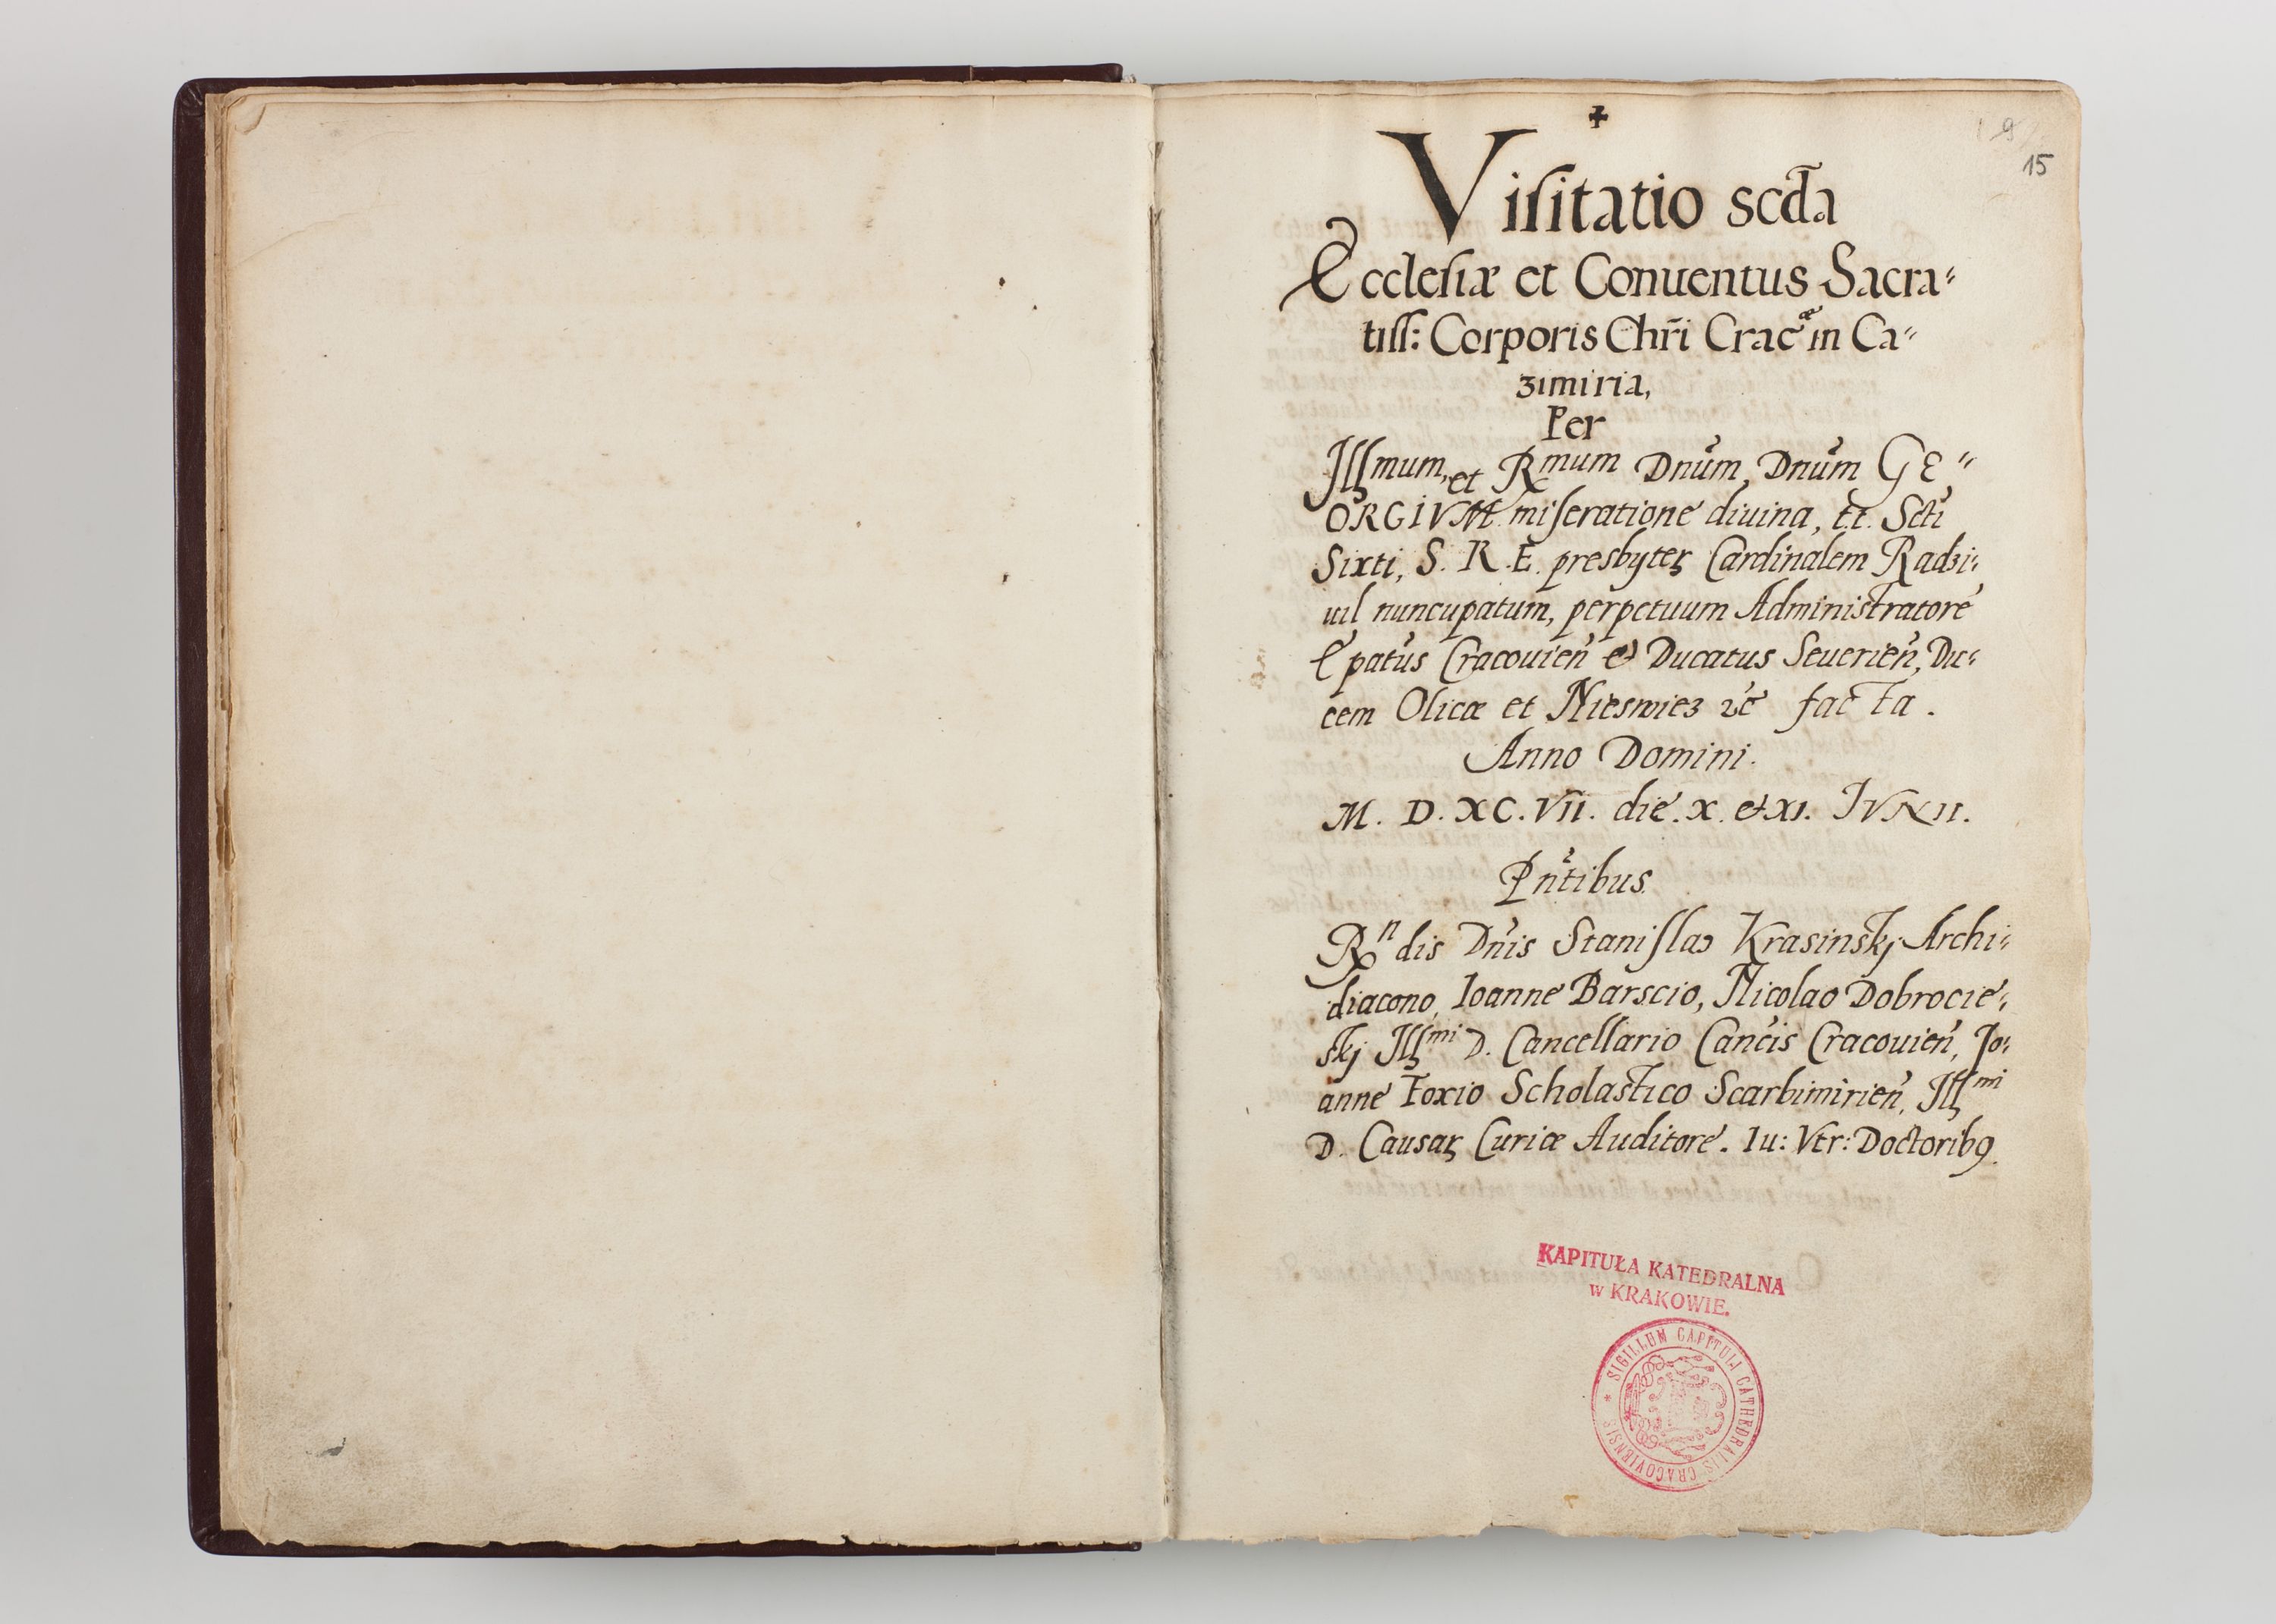 +
9
15
Viſitatio scd̃a
Eccleſiæ et Conuentus Sacra-
tiſſ: Corporis Chr̃i Crac̃æ in Ca-
zimiria,
Per
Illmum, et Rmum Dnũm, Dnũm GE-
ORGIVM miſeratione diuina, t.t. Sct̃i
Sixti, S. R. E. presbyteꝝ Cardinalem Radzi-
uil nuncupatum, perpetuum Administratorẽ
Ep̃atus Cracouieñ et Ducatus Seuerieñ, Du-
cem Olicæ et Nieswiez ⁊c̃ facta.
Anno Domini.
M. D. XC. VII. die. X. et XI. IVNII.
Pñtibus
Rndis Dñis Staniſlao Krasinskj Archi-
diacono, Ioanne Barscio, Nicolao Dobrocie-
skj Illmi D. Cancellario Canc̃is Cracouieñ, Jo-
anne Foxio Scholastico Scarbimirieñ, Illmi
D. Causaꝝ Curiæ Auditore. Iu: Vtr: Doctoribꝯ
KAPITUŁA KATEDRALNA
w KRAKOWIE.
* SIGILLUM CAPITULI CATHEDRALIS CRACOVIENSIS